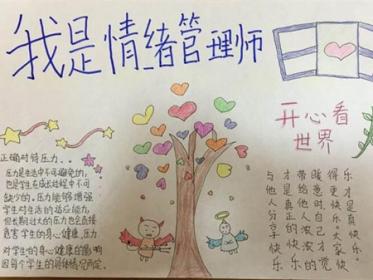 我是情绪管理师
正确对待压力..
压力是生活中不可避免的,
也是学生在成长过程中不可
缺少的。压力能够增强
学生对生活的适应能力,
但长期过大的压力也会直接
危害学生的身心健康。压力
对学生的身心健康的影响
因每个学生的具体情况而定。
开心看
世界
与他人分享快乐
才是真正的快乐。
带给他人浓浓的
暖意时自己才觉
得更快乐。大家快
乐才是真快乐